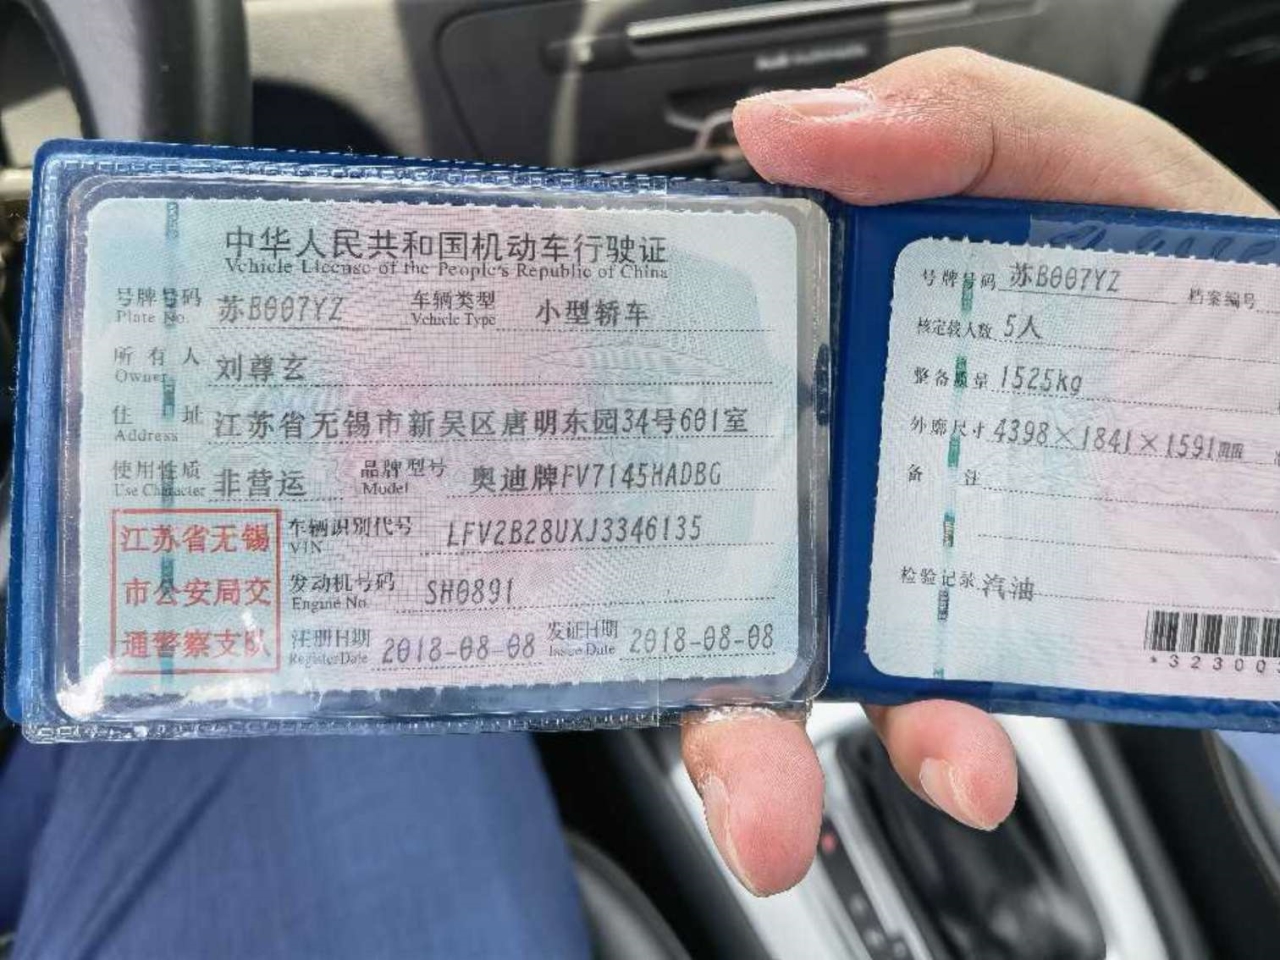 中华人民共和国机动车行驶证
Vehicle License of the People's Republic of China
号牌号码 苏B007YZ 车辆类型 小型轿车
Plate No. Vehicle Type
所有人 刘尊玄
Owner
住址 江苏省无锡市新吴区唐明东园34号601室
Address
使用性质 非营运 品牌型号 奥迪牌FV7145HADBG
Use Character Model
车辆识别代号 LFV2B28UXJ3346135
VIN
发动机号码 SH0891
Engine No.
注册日期 2018-08-08 发证日期 2018-08-08
Register Date Issue Date
江苏省无锡
市公安局交
通警察支队
号牌号码 苏B007YZ 档案编号
核定载人数 5人
整备质量 1525kg
外廓尺寸 4398×1841×1591mm
备注
检验记录 汽油
*32300